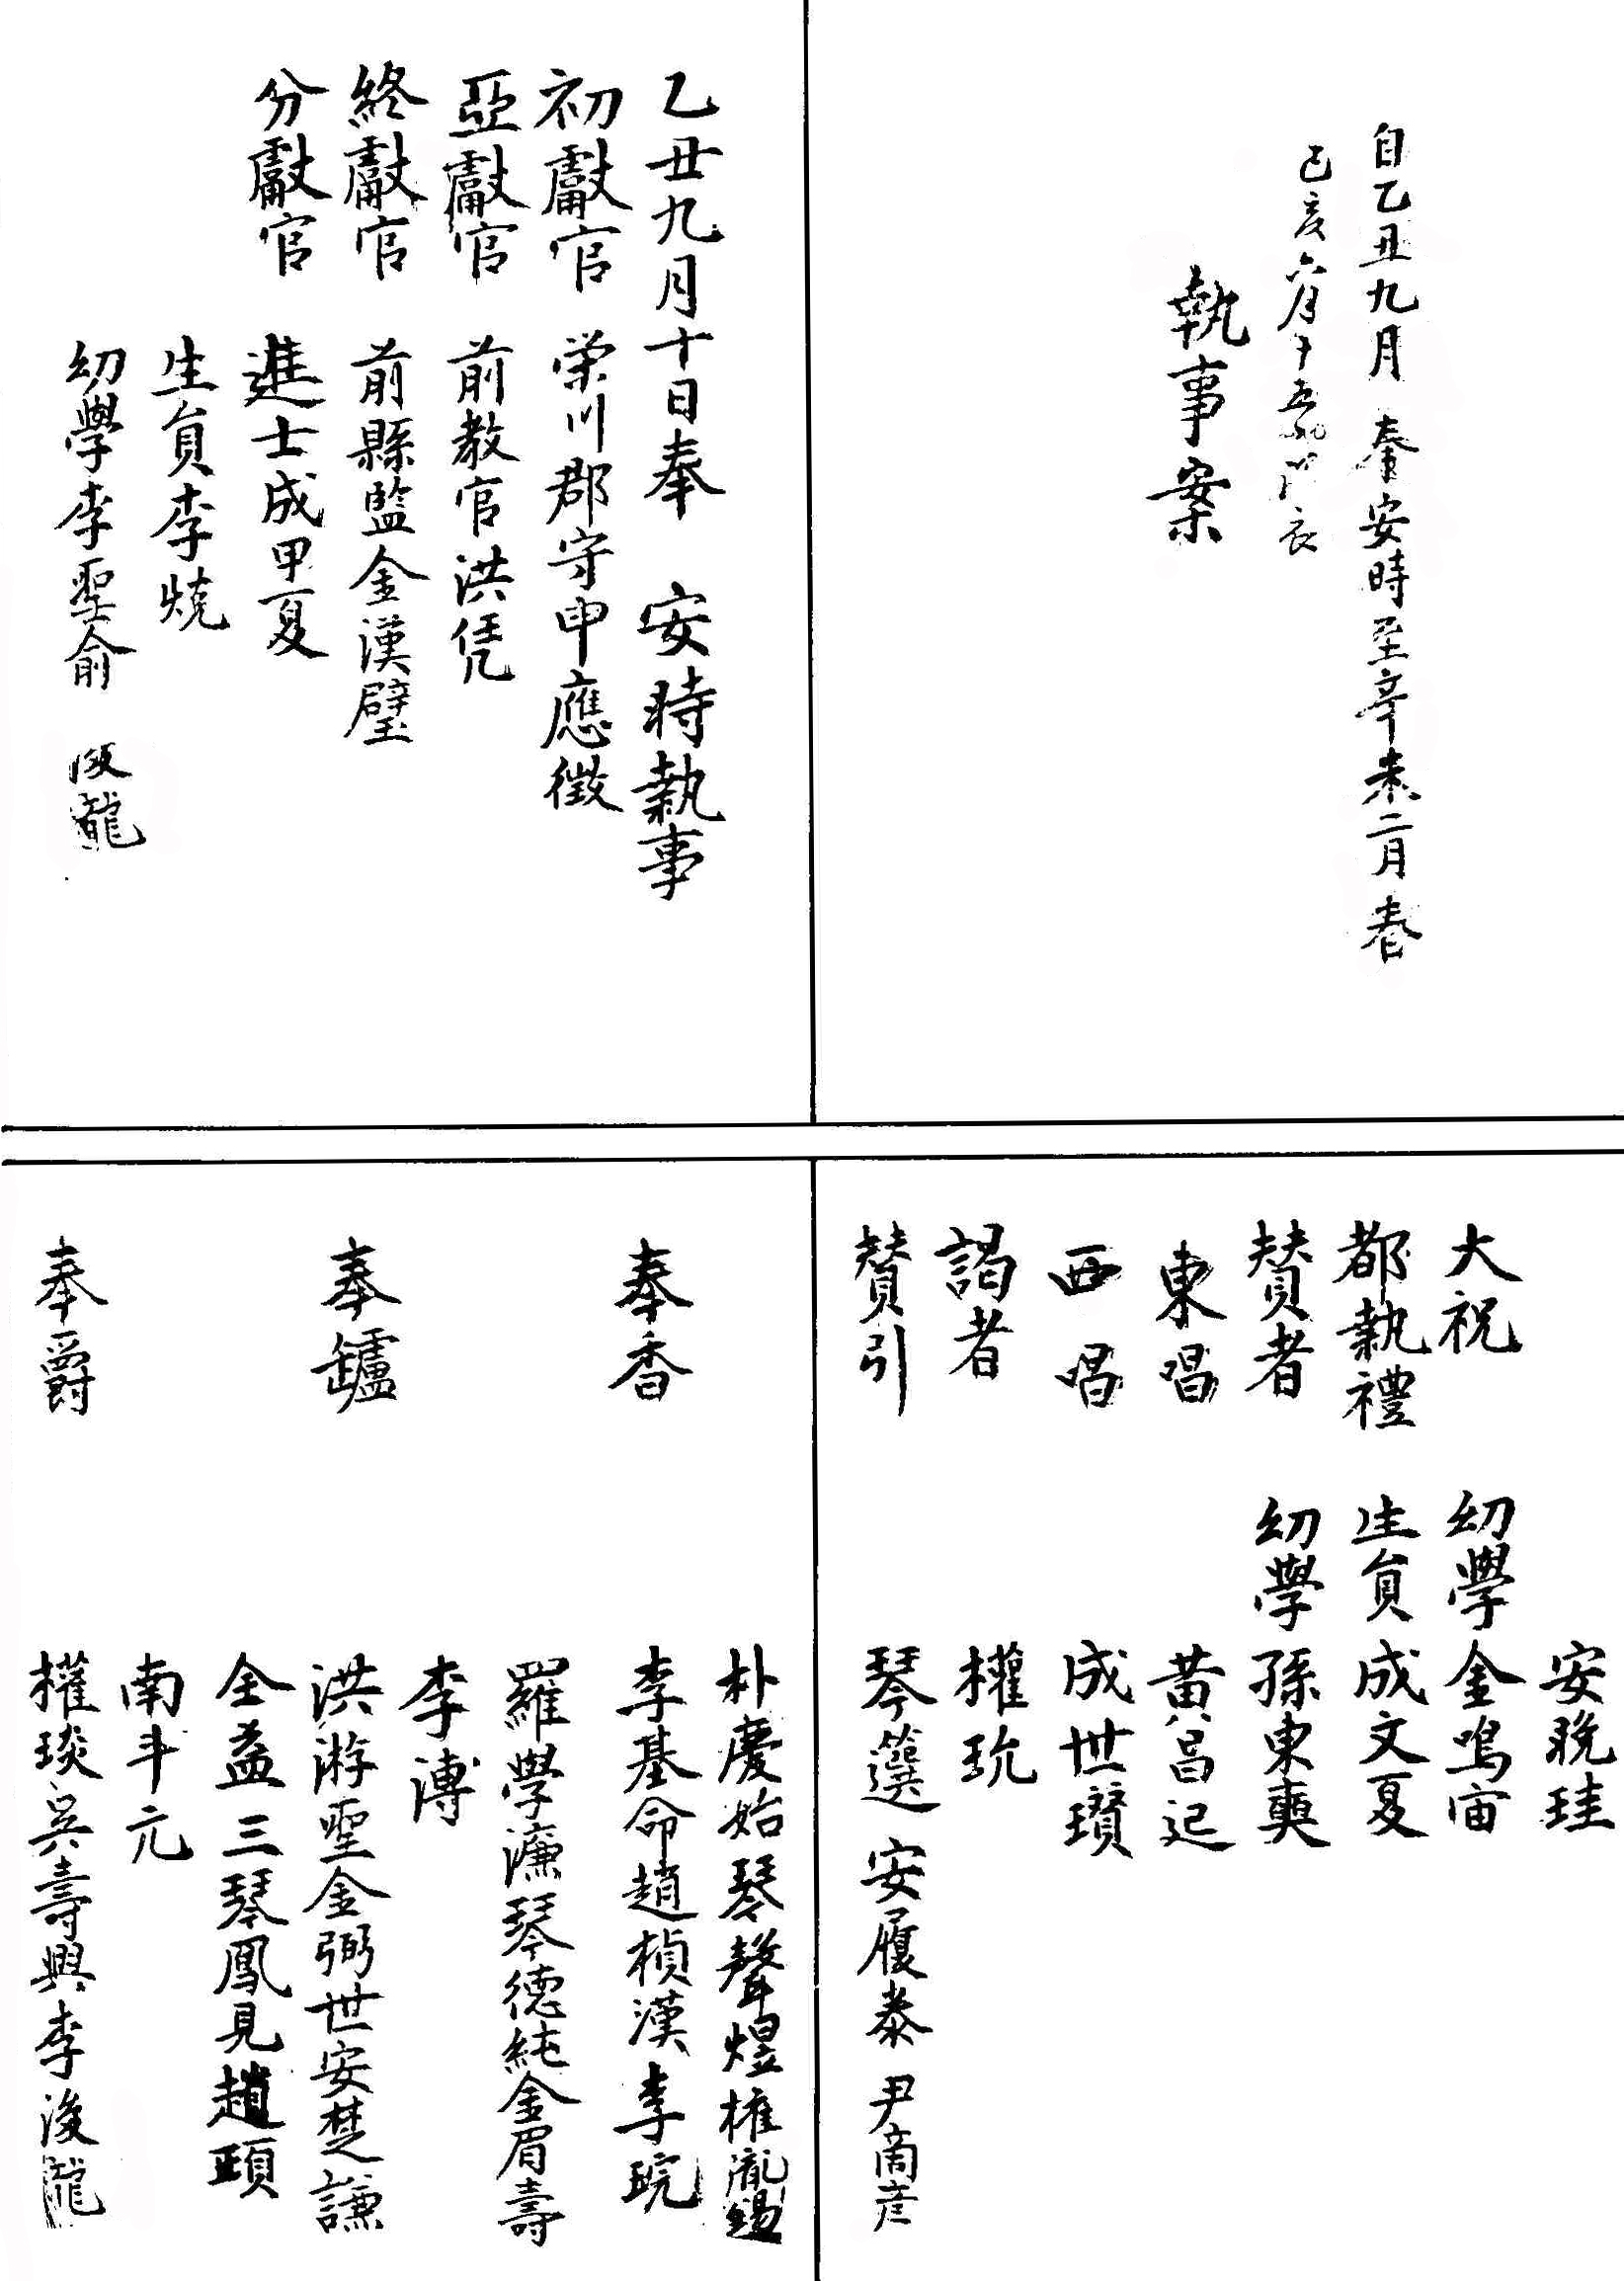 自乙丑九月奉安時至辛未二月春
己亥六月十五
執事案
乙丑九月十日奉 安時執事
初獻官 榮川郡守申應徵
亞獻官 前敎官洪凭
終獻官 前縣監金漢璧
分獻官 進士成甲夏
生員李燒
幼學李聖俞
安晩珪
大祝 幼學金鳴宙
都執禮 生員成文夏
賛者 幼學孫東奭
東唱 黃昌
西唱 成世瓚
謁者 權玧
賛引 琴䉵 安履泰 尹商彦
朴慶始琴聲煜權胤錫
奉香 李基命趙楨漢李琓
羅學濂琴德純金眉壽
李溥
奉鑪 洪游聖金弼世安楚謙
全益三琴鳳見趙頣
南斗元
奉爵 權琰吳壽興李浚龍